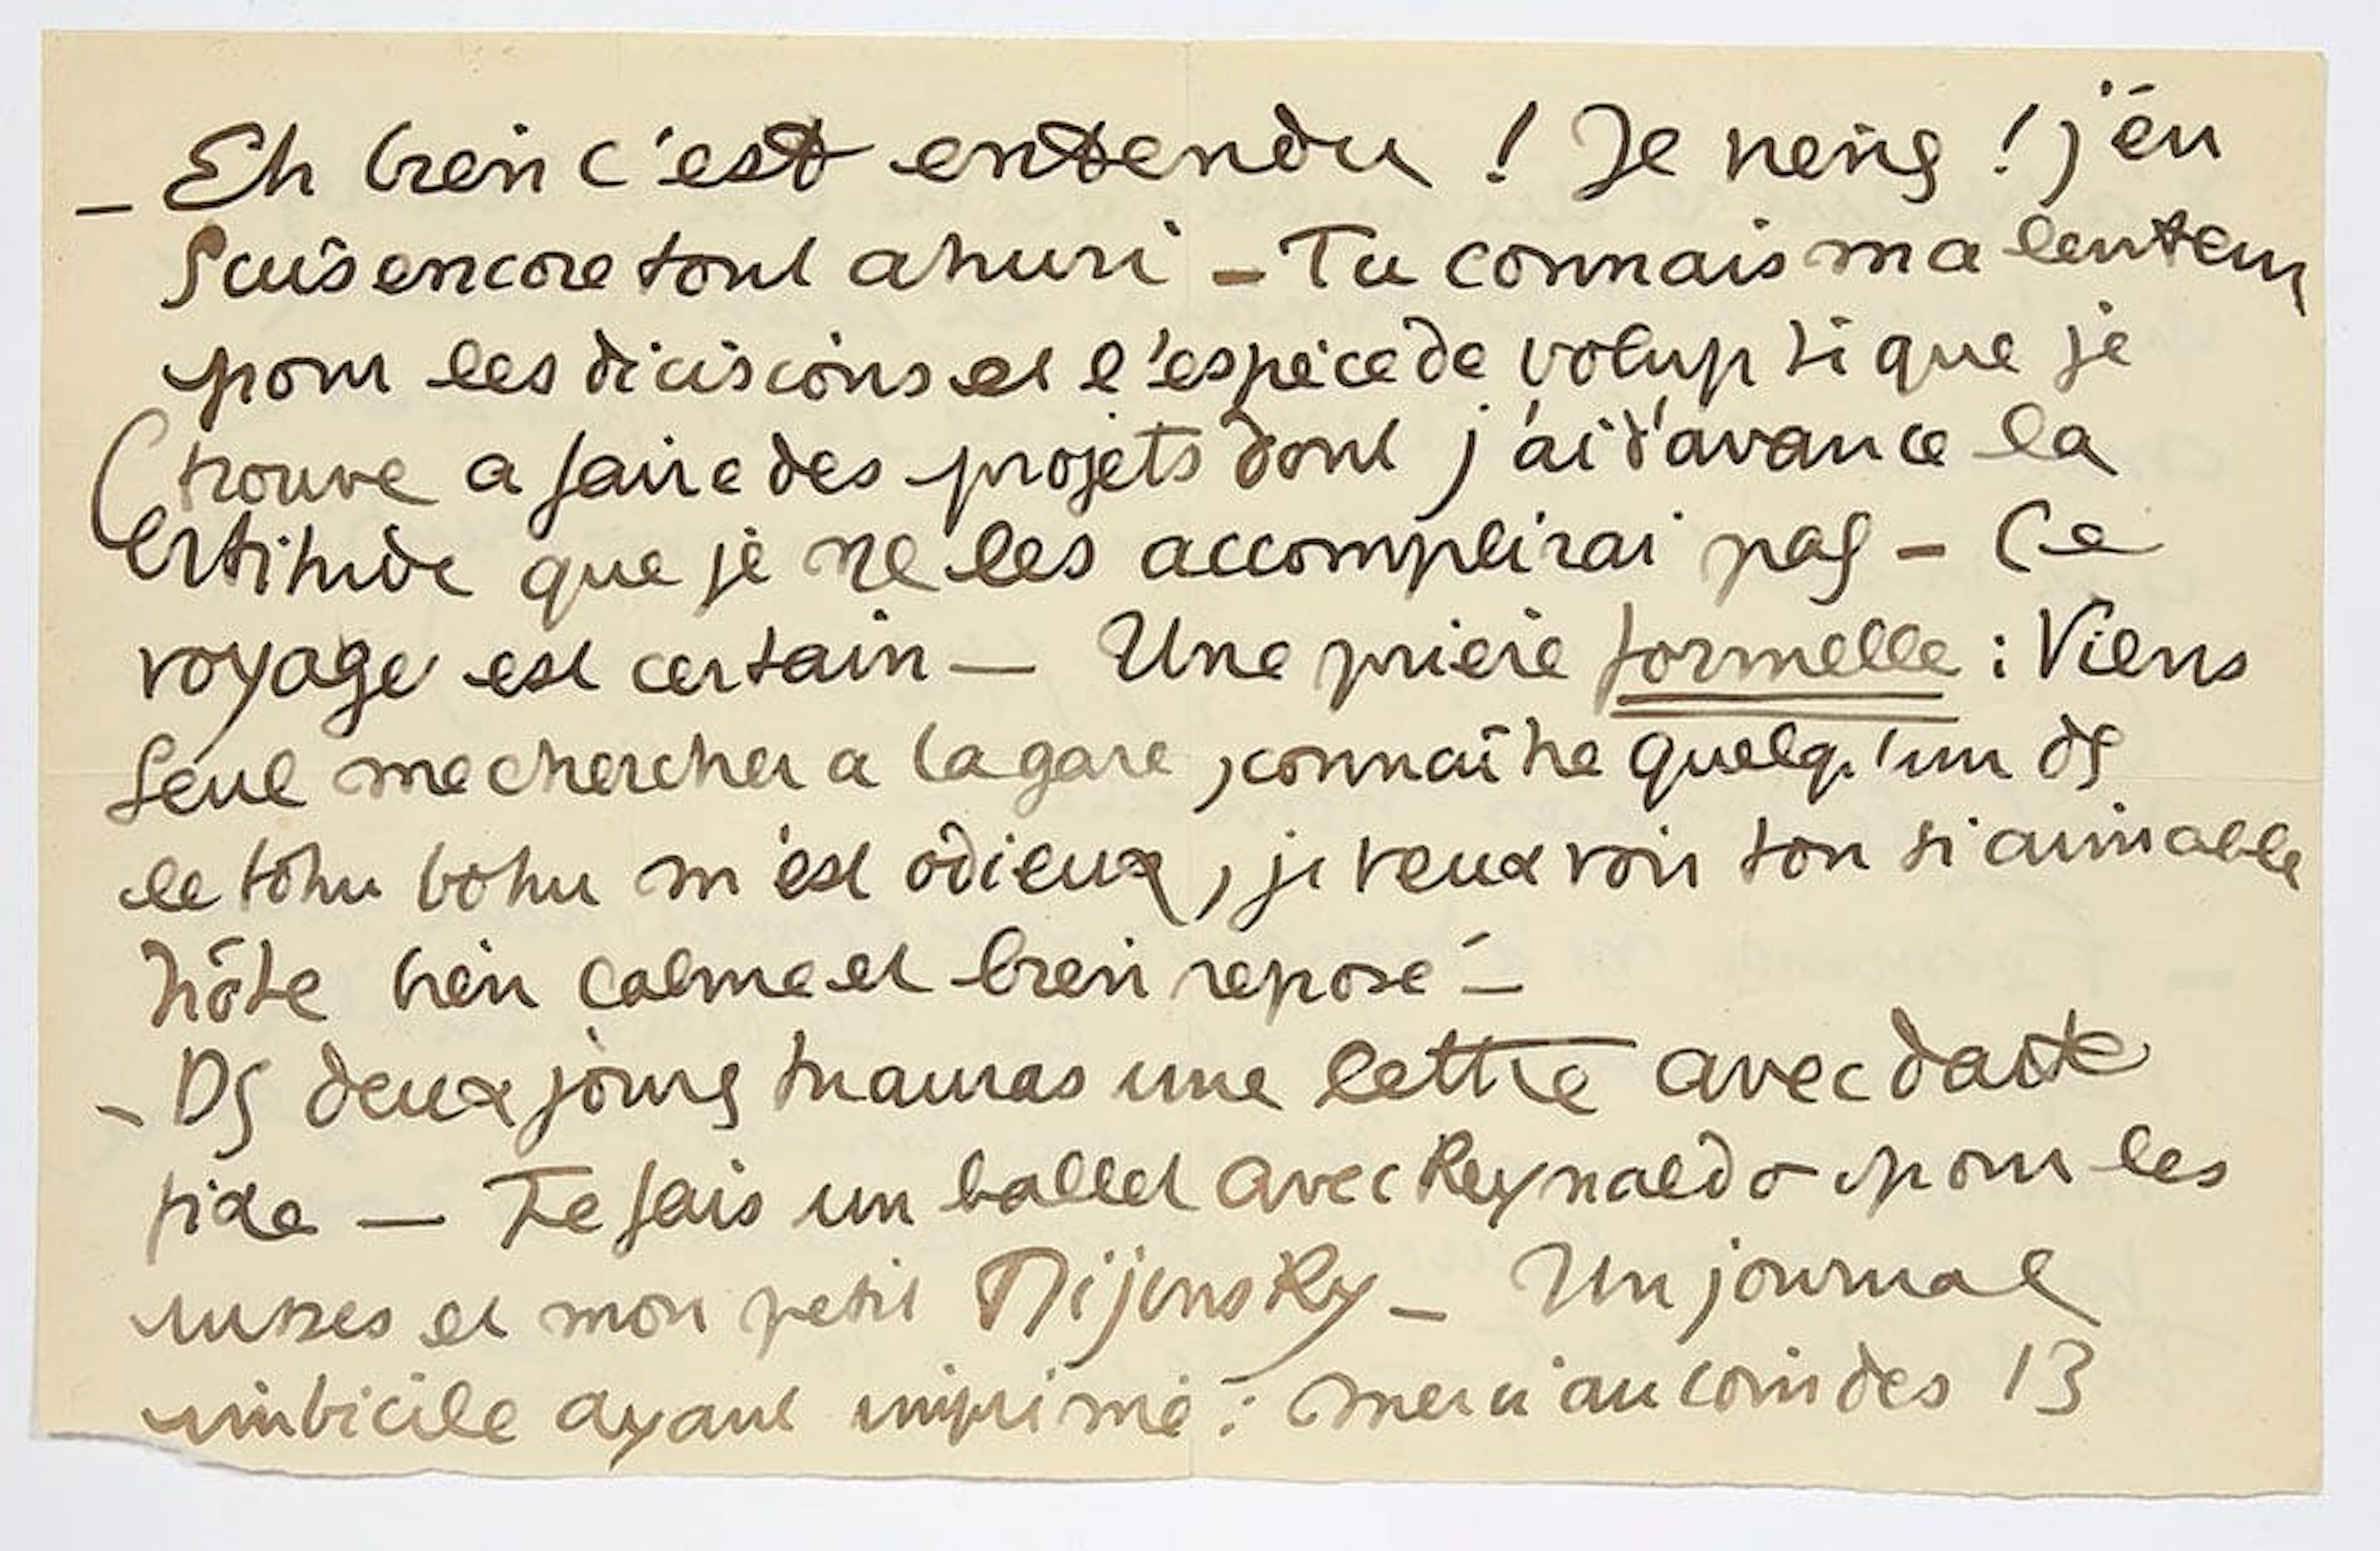 - Eh bien c'est entendu ! Je viens ! j'en
suis encore tout ahuri - Tu connais ma lenteur
pour les décisions et l'espèce de volupté que je
trouve a faire des projets dont j'ai d'avance la
certitude que je ne les accomplirai pas - Ce
voyage est certain — Une prière formelle : Viens
seul me chercher a la gare, connaître quelqu'un ds
le tohu bohu m'est odieux, je veux voir ton si aimable
hôte bien calme et bien reposé -
- Ds deux jours tu auras une lettre avec date
fixe — Je fais un ballet avec Reynaldo pour les
russes et mon petit Nijinsky - Un journal
imbécile ayant imprimé : merci au coin des 13